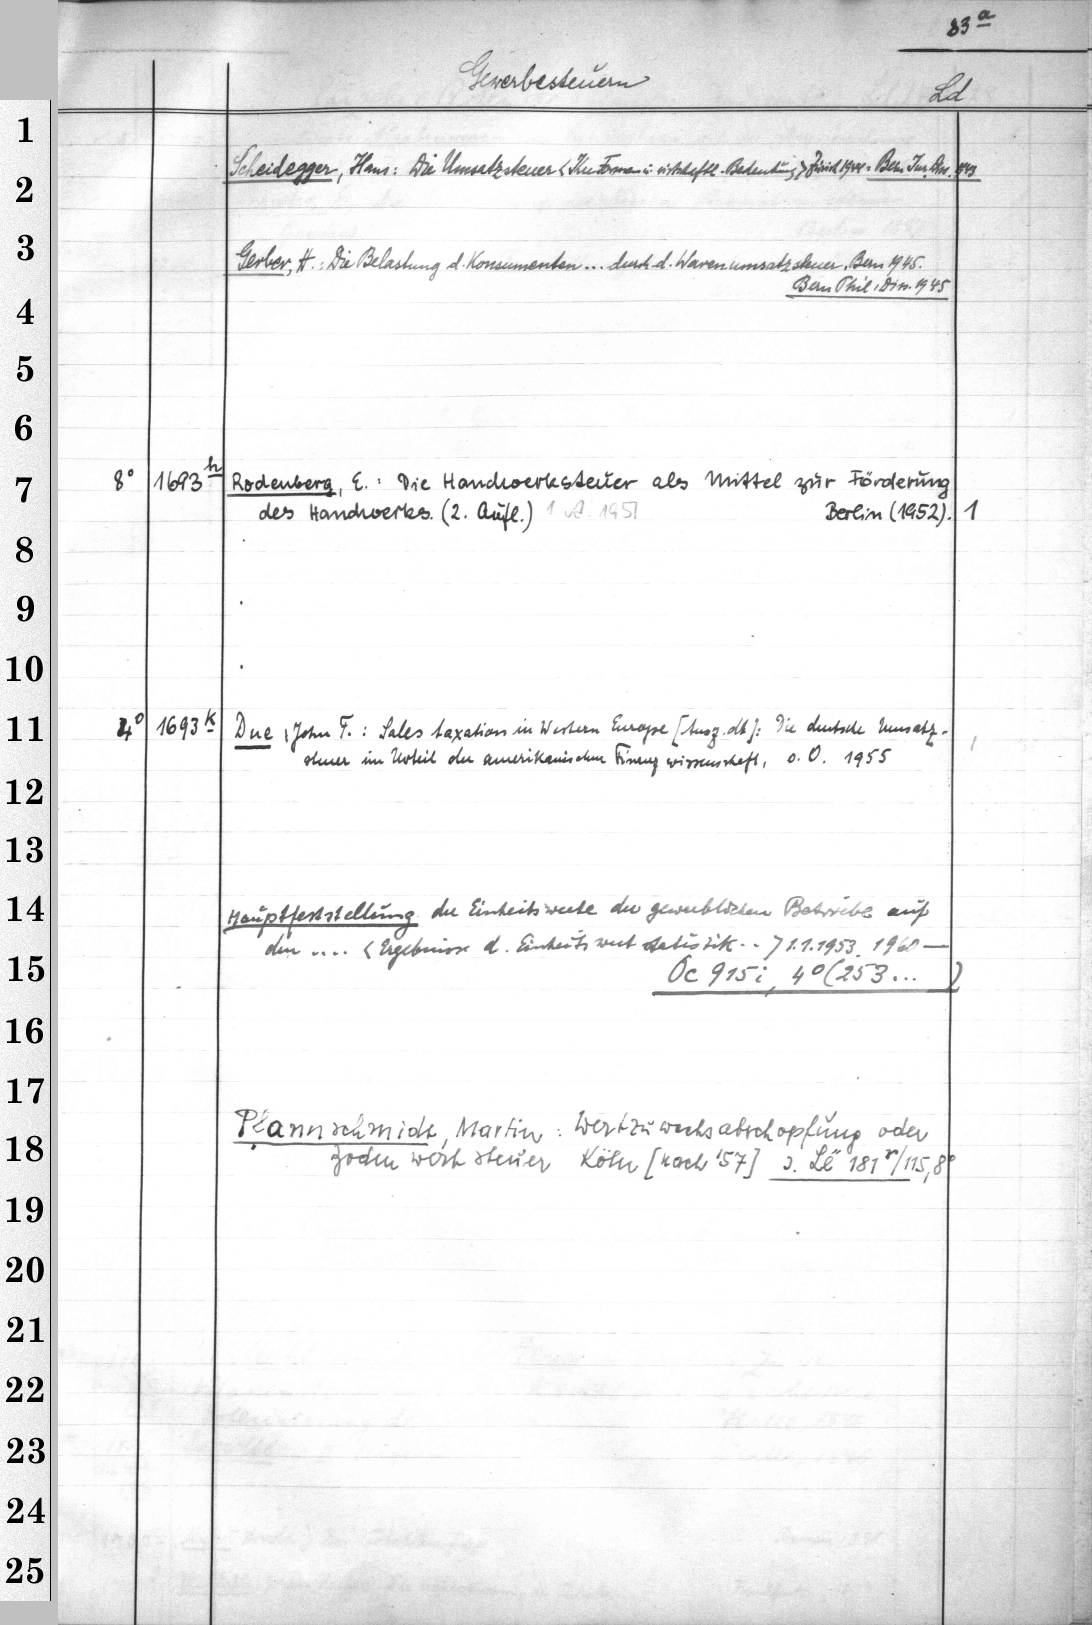 83 a
Gewerbesteuern
Ld
1
Scheidegger, Hans: Die Umsatzsteuer < Ihre Formen u. wirtschaftl. Bedeutung > Zürich 1944 = Bern Jur. Diss. 1943
2
3 Gerber, H.: Die Belastung d. Konsumenten ... durch d. Warenumsatzsteuer. Bern 1945.
Bern Phil. Diss. 1945
4
5
6
7 8° 1693 h Rodenberg, E.: Die Handwerksteuer als Mittel zur Förderung
des Handwerks. (2. Aufl.) 1 A. 1951 Berlin (1952). 1
8
9
10
11 4° 1693 k Due, John F.: Sales taxation in Western Europe [Ausz. dt]: Die deutsche Umsatz-
steuer im Urteil der amerikanischen Finanzwissenschaft, o. O. 1955
12
13
14 Hauptfeststellung der Einheitswerte der gewerblichen Betriebe auf
den .... < Ergebnisse d. Einheitswertstatistik .. > 1.1.1953. 1960—
15 Oc 915i, 4° (253 ... )
16
17
Pfannschmidt, Martin: Wertzuwachsabschöpfung oder
18 Bodenwertsteuer Köln [nach '57] s. Le 181 r/115, 8°
19
20
21
22
23
24
25